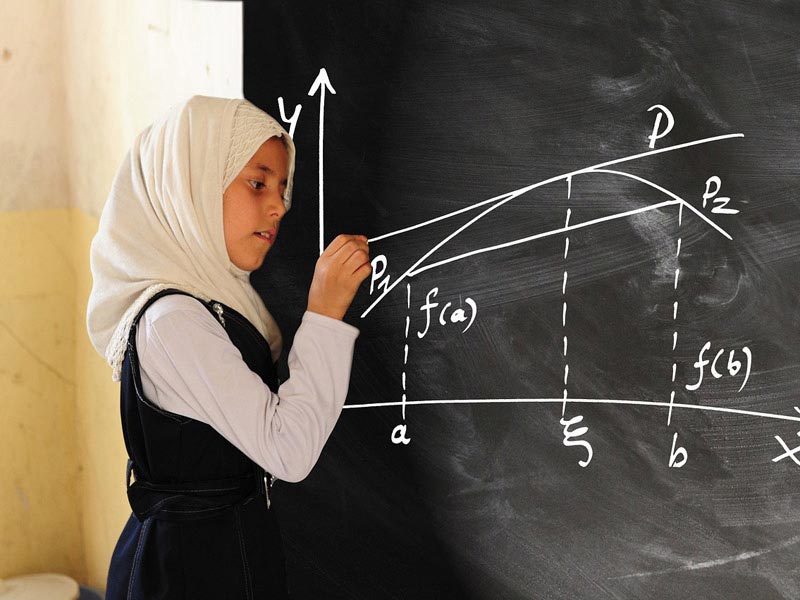 y
P
P₂
P₁
f(a)
f(b)
a
ξ
b
x